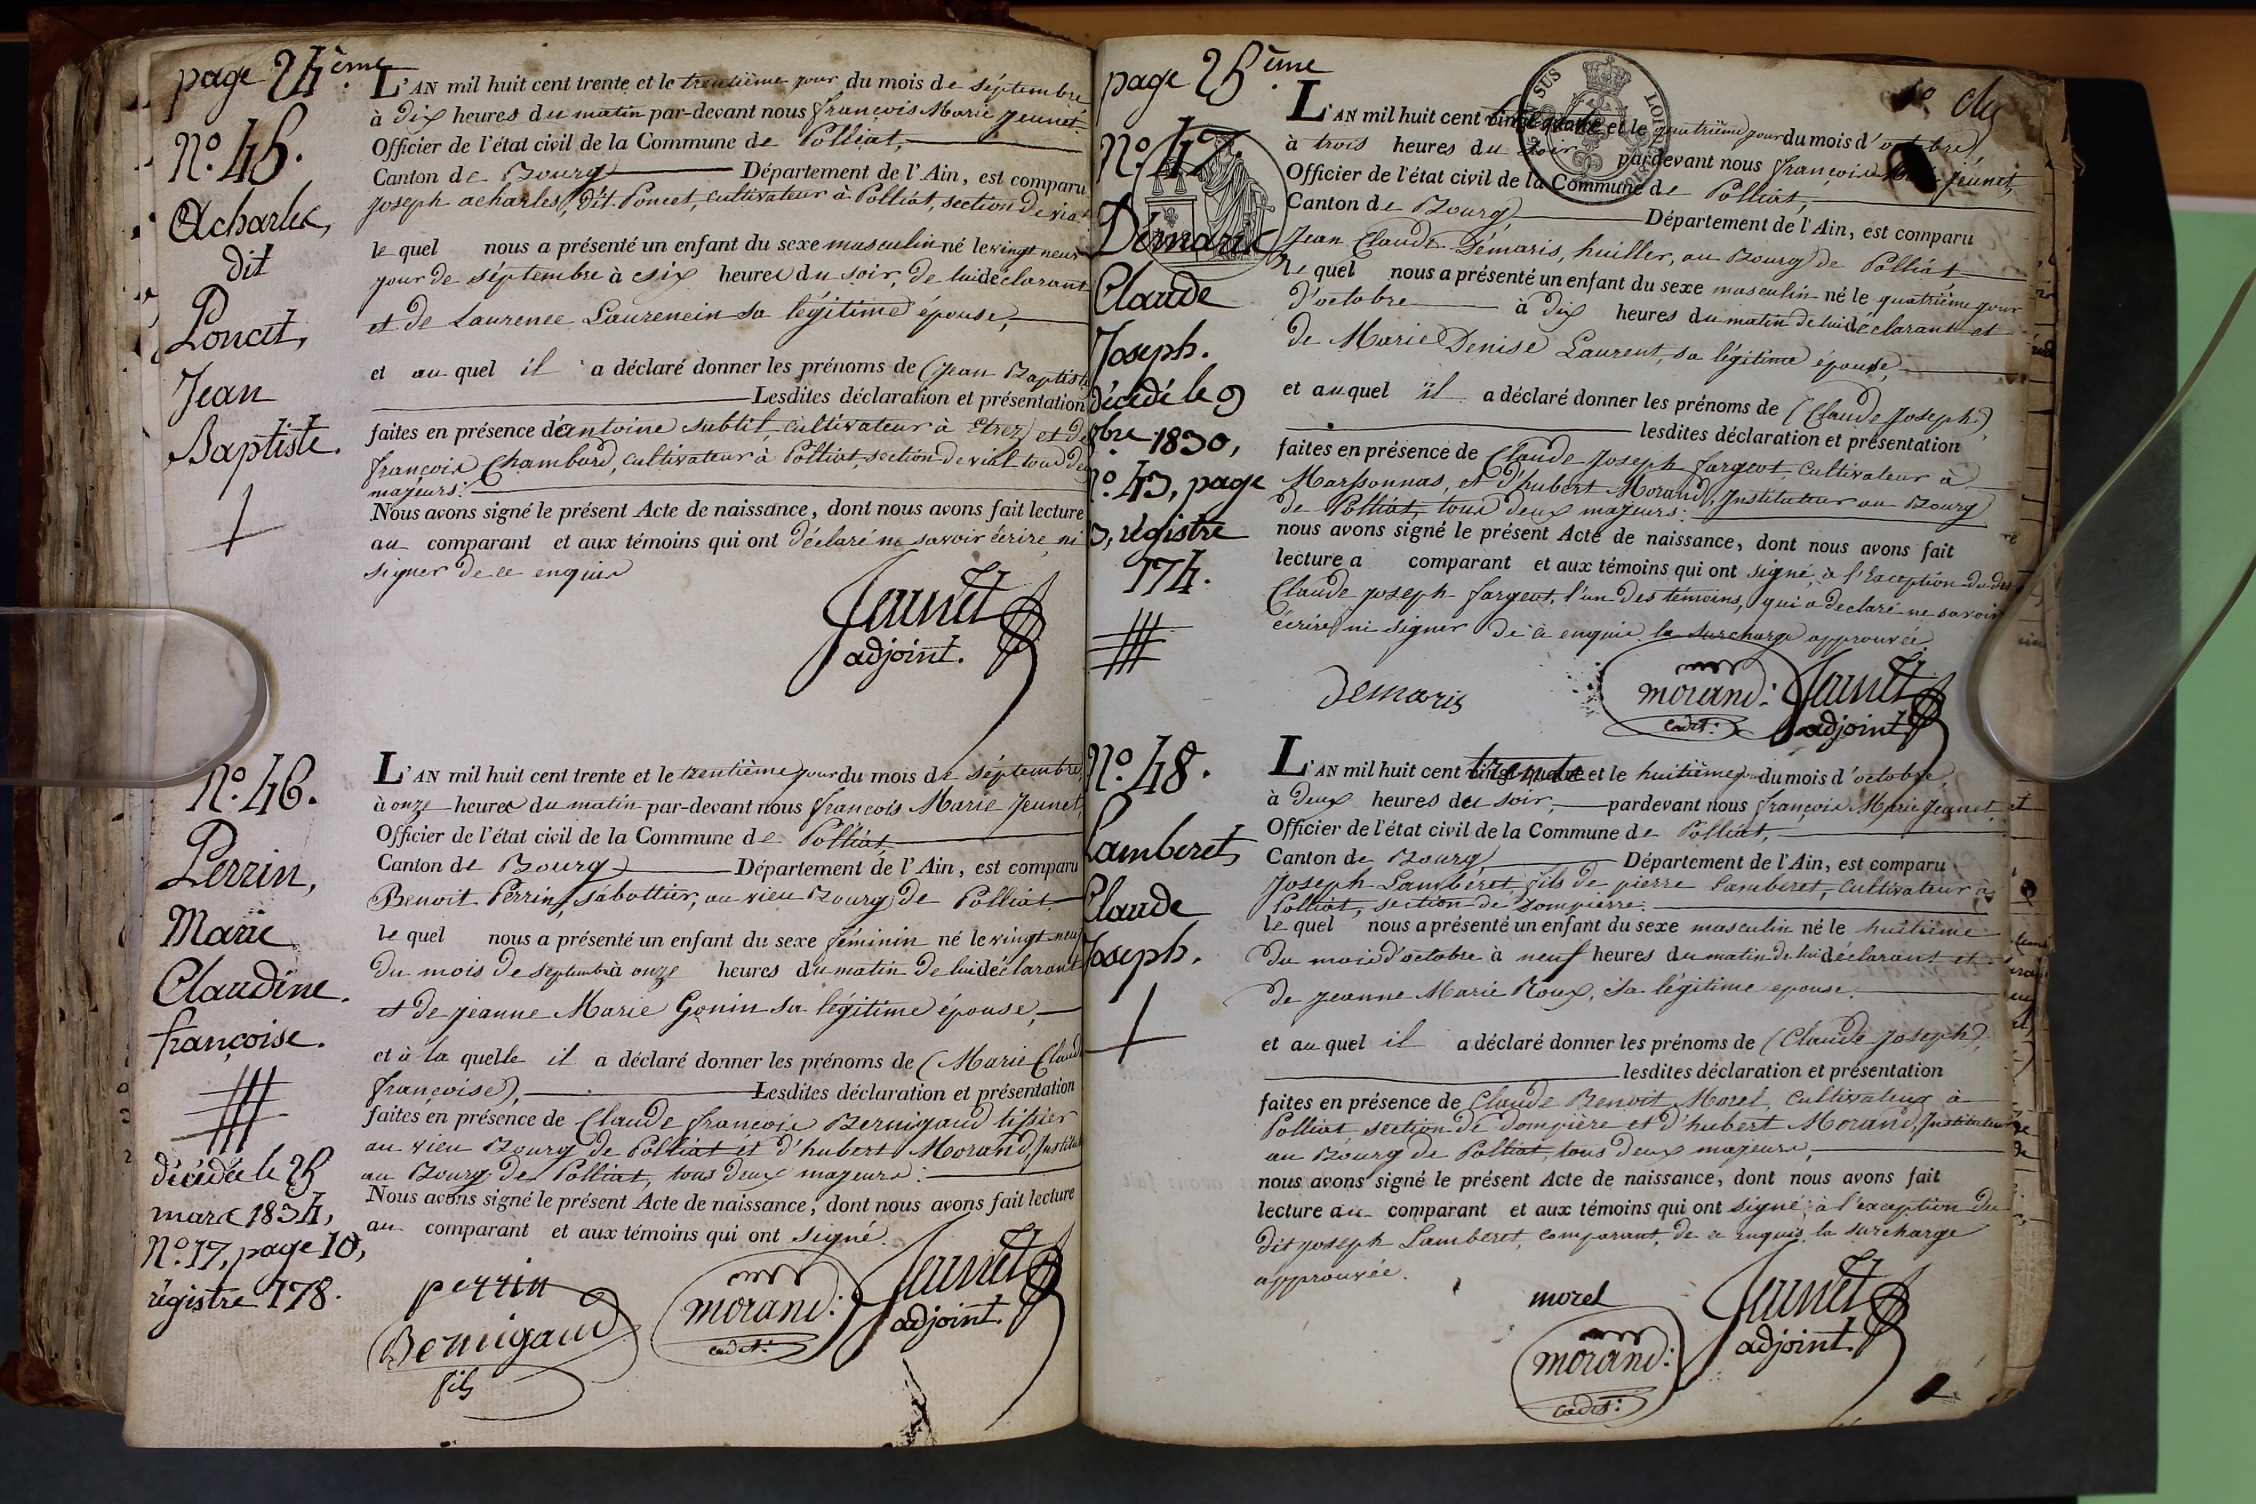 page 24ème
N.º 45.
Acharles,
dit
Poncet,
Jean
Baptiste.
L'AN mil huit cent trente et le trentième jour du mois de séptembre
à dix heures du matin par-devant nous françois Marie Jeunet
Officier de l'état civil de la Commune de Polliat,
Canton de Bourg Département de l'Ain, est comparu
Joseph acharles, dit Poncet, cultivateur à Polliat, section de vial
le quel nous a présenté un enfant du sexe masculin né le vingt neuf
jour de séptembre à six heures du soir, de lui déclarant
et de Laurence Laurencin sa légitime épouse,
et au quel il a déclaré donner les prénoms de (Jean Baptiste
Lesdites déclaration et présentation
faites en présence d'antoine subtil, cultivateur à Etrez et de
françois Chambard, cultivateur à Polliat, section de vial tous deux
majeurs.
Nous avons signé le présent Acte de naissance, dont nous avons fait lecture
au comparant et aux témoins qui ont déclaré ne savoir écrire ni
signer de ce enquis
Jeunet
adjoint.
N.º 46.
Perrin,
Marie
Claudine.
françoise.
décédée le 25
mars 1834,
N.º 17, page 10,
régistre 178.
L'AN mil huit cent trente et le trentième jour du mois de séptembre,
à onze heures du matin par-devant nous françois Marie Jeunet,
Officier de l'état civil de la Commune de Polliat,
Canton de Bourg Département de l'Ain, est comparu
Benoit Perrin, sabottier, au vieu Bourg de Polliat,
le quel nous a présenté un enfant du sexe féminin né le vingt neuf
du mois de septembre à onze heures du matin de lui déclarant
et de jeanne Marie Gonin sa légitime épouse,
et à la quelle il a déclaré donner les prénoms de (Marie Claud
françoise),
Lesdites déclaration et présentation
faites en présence de Claude françois Bernigaud tissier
au vieu Bourg de Polliat et d'hubert Morand, Institut
au Bourg de Polliat, tous deux majeurs.
Nous avons signé le présent Acte de naissance, dont nous avons fait lecture
au comparant et aux témoins qui ont signé.
perrin
Bernigaud
fils
morand:
cadet:
Jeunet
adjoint.
page 25ème
N.º 47.
Démaris
Claude
Joseph.
décédé le 9
bre 1830,
N.º 43, page
régistre
174.
L'AN mil huit cent vingt-quatre et le quatrième jour du mois d'octobre
à trois heures du soir pardevant nous françois Jeunet,
Officier de l'état civil de la Commune de Polliat,
Canton de Bourg Département de l'Ain, est comparu
Jean Claude Démaris, huillier, au Bourg de Polliat
le quel nous a présenté un enfant du sexe masculin né le quatrième jour
d'octobre à dix heures du matin de lui déclarant et
de Marie Denise Laurent, sa légitime épouse,
et au quel il a déclaré donner les prénoms de (Claude Joseph)
lesdites déclaration et présentation
faites en présence de Claude Joseph fargeot, cultivateur à
Marssonnas, et d'hubert Morand, Instituteur au Bourg
de Polliat, tous deux majeurs.
nous avons signé le présent Acte de naissance, dont nous avons fait
lecture a comparant et aux témoins qui ont signé, à l'Exception du dit
Claude joseph fargeot, l'un des témoins, qui a déclaré ne savoir
écrire ni signer de ce enquis. la surcharge approuvée.
Demaris
morand:
cadet:
Jeunet
adjoint.
N.º 48.
Lamberet
Claude
Joseph.
L'AN mil huit cent trente et le huitième jour du mois d'octobre,
à deux heures du soir, pardevant nous françois Marie Jeunet,
Officier de l'état civil de la Commune de Polliat,
Canton de Bourg Département de l'Ain, est comparu
Joseph Lamberet, fils de pierre Lamberet, Cultivateur à
Polliat, section de Dompierre.
le quel nous a présenté un enfant du sexe masculin né le huitième
du mois d'octobre à neuf heures du matin de lui déclarant et
de jeanne Marie Roux, sa légitime epouse.
et au quel il a déclaré donner les prénoms de (Claude Joseph),
lesdites déclaration et présentation
faites en présence de Claude Benoit Morel, Cultivateur à
Polliat, section de Dompierre et d'hubert Morand, Instituteur
au Bourg de Polliat, tous deux majeurs,
nous avons signé le présent Acte de naissance, dont nous avons fait
lecture au comparant et aux témoins qui ont signé, à l'exception du
dit joseph Lamberet, comparant, de ce enquis. la surcharge
approuvée.
morel
morand:
cadet:
Jeunet
adjoint.